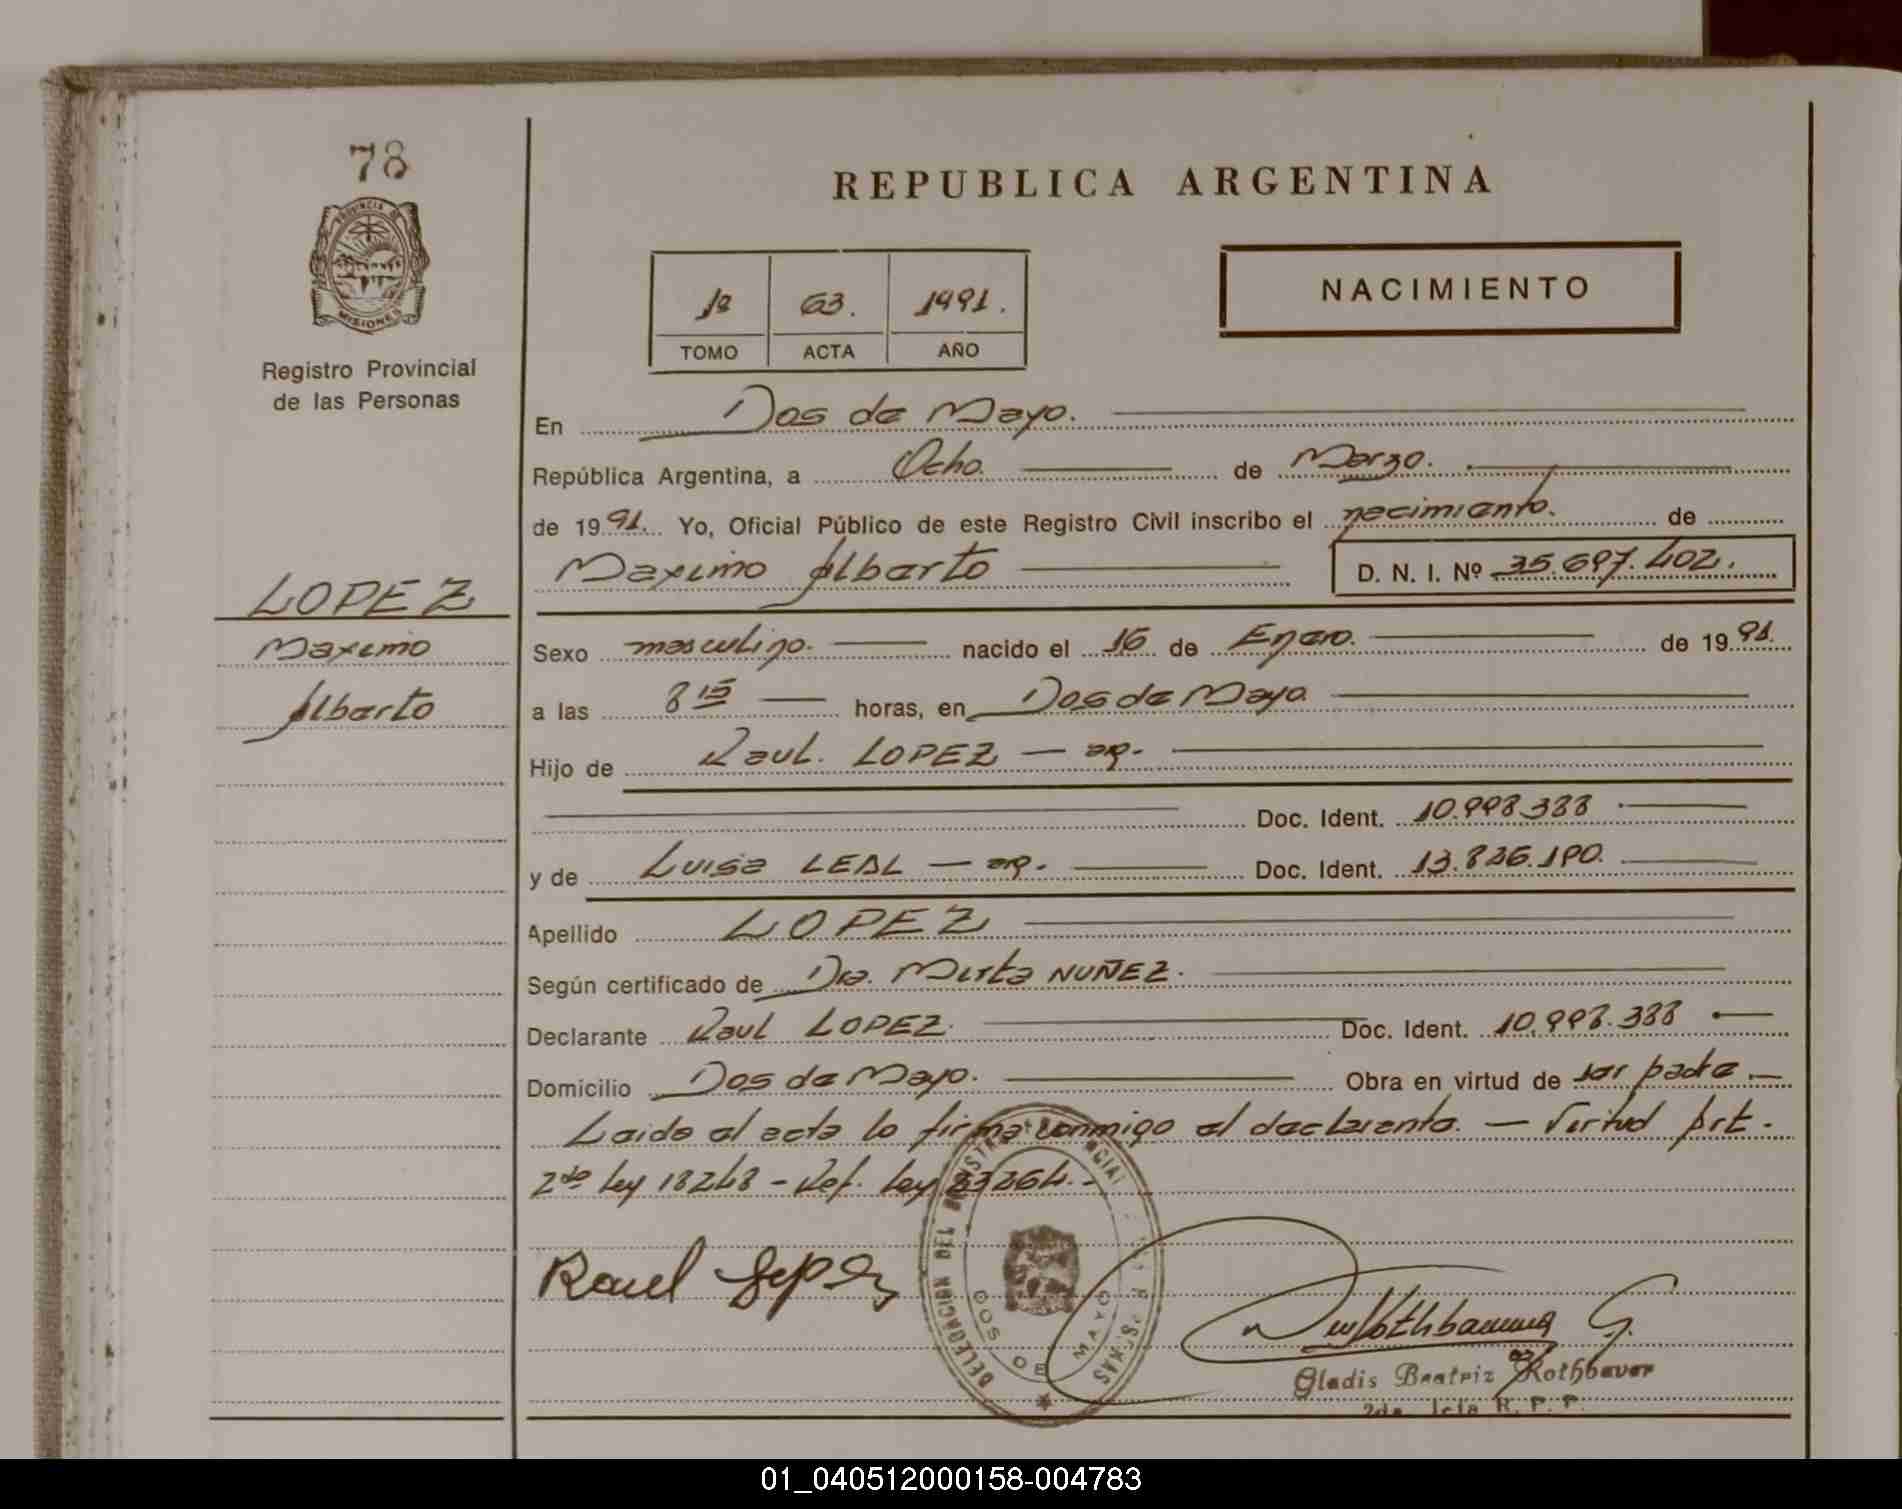 78
REPUBLICA ARGENTINA
PROVINCIA DE
MISIONES
Registro Provincial
de las Personas
1º 63. 1991.
TOMO ACTA AÑO
NACIMIENTO
En Dos de Mayo.
República Argentina, a Ocho. de Marzo.
de 1991. Yo, Oficial Público de este Registro Civil inscribo el nacimiento. de
Maximo Alberto D. N. I. Nº 35.697.402.
LOPEZ
Maximo
Alberto
Sexo masculino. nacido el 16 de Enero. de 1991.
a las 8 15 horas, en Dos de Mayo.
Hijo de Raul. LOPEZ — arg.
Doc. Ident. 10.998.388
y de Luisa LEAL — arg. Doc. Ident. 13.826.190.
Apellido LOPEZ
Según certificado de Dra. Mirta NUÑEZ.
Declarante Raul LOPEZ. Doc. Ident. 10.998.388
Domicilio Dos de Mayo. Obra en virtud de ser padre.—
Leida el acta lo firma conmigo el declarante. — Virtud Art.
2do ley 18248 - Ref. ley 23264.-
Raul Lopez
DELEGACION DEL
DOS DE MAYO
Rothbauer G.
Gladis Beatriz Rothbauer
R. P. P.
01_040512000158-004783